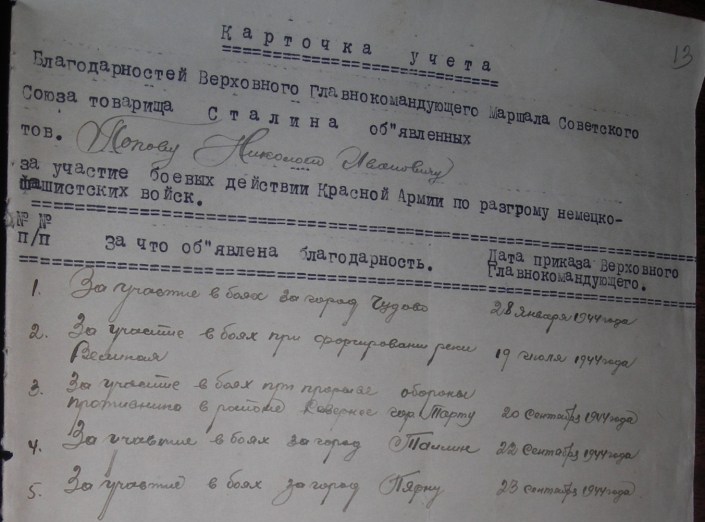 13
Карточка учета
Благодарностей Верховного Главнокомандующего Маршала Советского
Союза товарища Сталина об"явленных
тов. Попову Николаю Ивановичу
за участие боевых действии Красной Армии по разгрому немецко-
фашистских войск.
№ № п/п За что об"явлена благодарность. Дата приказа Верховного Главнокомандующего.
1. За участие в боях за город Чудово 28 января 1944 года
2. За участие в боях при форсировани реки
Великая 19 июля 1944 года
3. За участие в боях при прорыве обороны
противника в районе Севернее гор Тарту 20 Сентября 1944 года
4. За участие в боях за город Таллин 22 Сентября 1944 года
5. За участие в боях за город Пярну 23 Сентября 1944 года